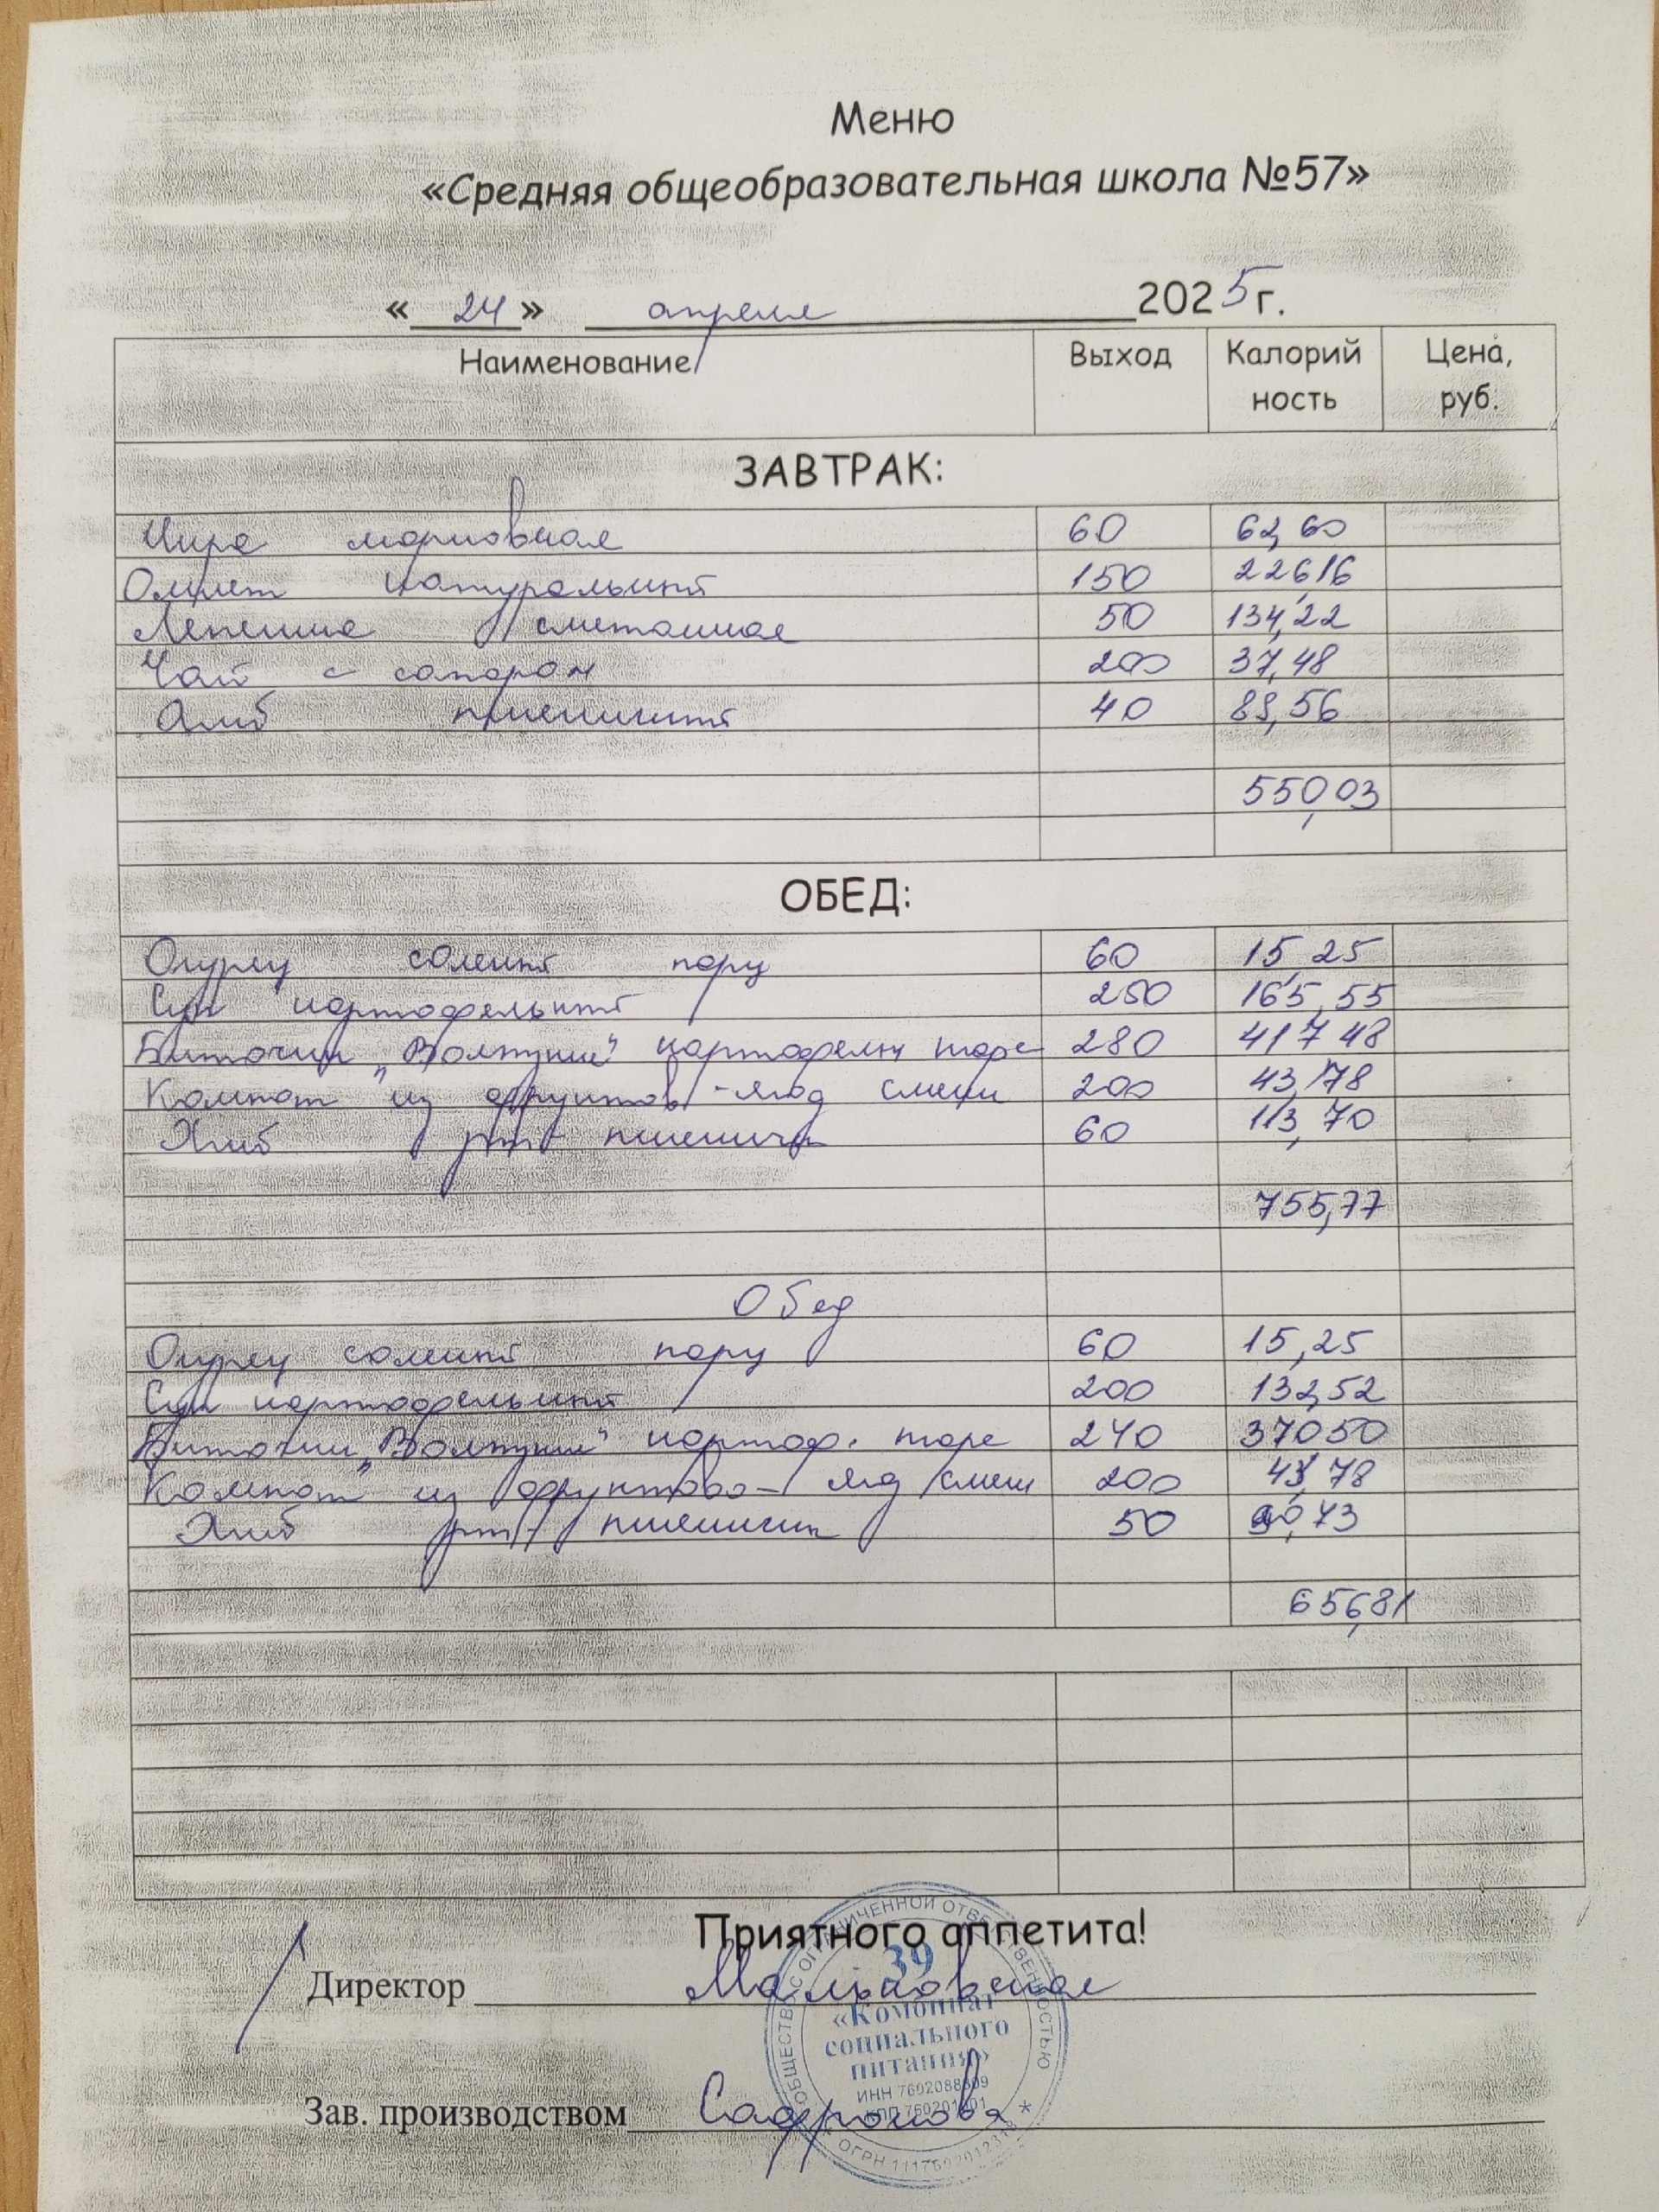 Меню
«Средняя общеобразовательная школа №57»
« 24 » апреля 2025 г.
Наименование Выход Калорий Цена,
ность руб.
ЗАВТРАК:
Икра морковная 60 62,60
Омлет натуральный 150 226,16
Лепешка сметанная 50 134,22
Чай с сахаром 200 37,48
Хлеб пшеничный 40 89,56
550,03
ОБЕД:
Огурец соленый порц 60 15,25
Суп картофельный 250 165,55
Биточки „Волжушки" картофельн пюре 280 417 48
Компот из фруктов-ягод смеси 200 43,78
Хлеб рж+ пшеничн 60 113,70
755,77
Обед
Огурец соленый порц 60 15,25
Суп картофельный 200 132,52
Биточки „Волжушки" картоф. пюре 240 370 50
Компот из фруктово-ягод смеси 200 43,78
Хлеб рж+ пшеничн 50 90,73
656,81
Приятного аппетита!
39
Директор Мальковская
«Комбинат
социального
питания»
ИНН 7602088809
Зав. производством Сафронова